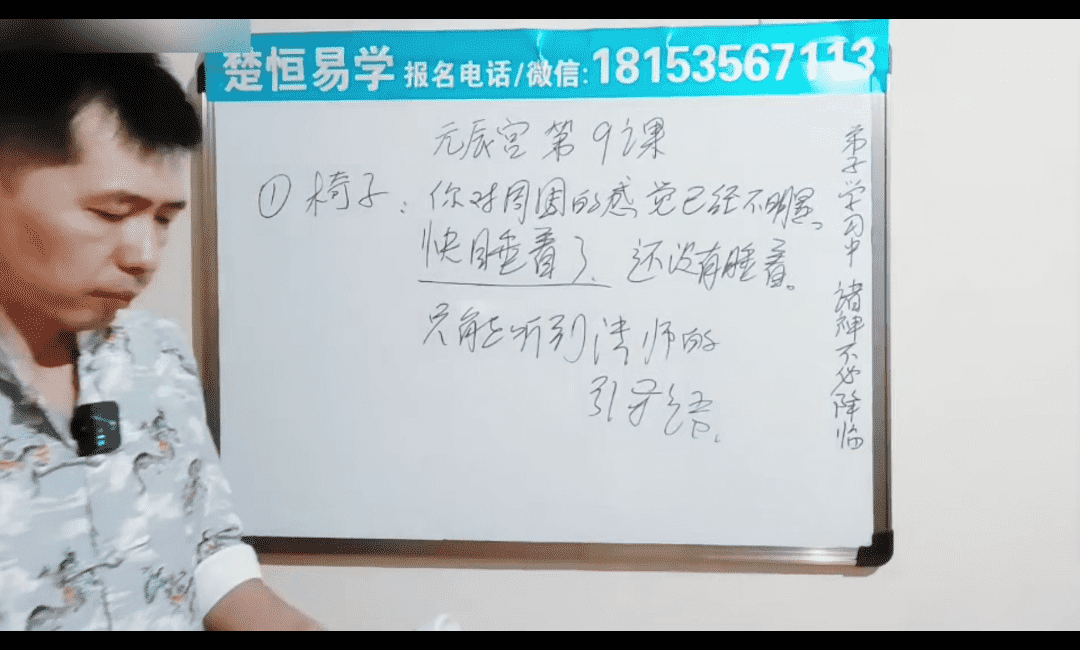 楚恒易学 报名电话/微信:18153567113
元辰宫 第9课
① 椅子:你对周围的感觉已经不明显。
快睡着了、还没有睡着。
只能听到法师的
引导语。
弟子学习中 诸神不必降临